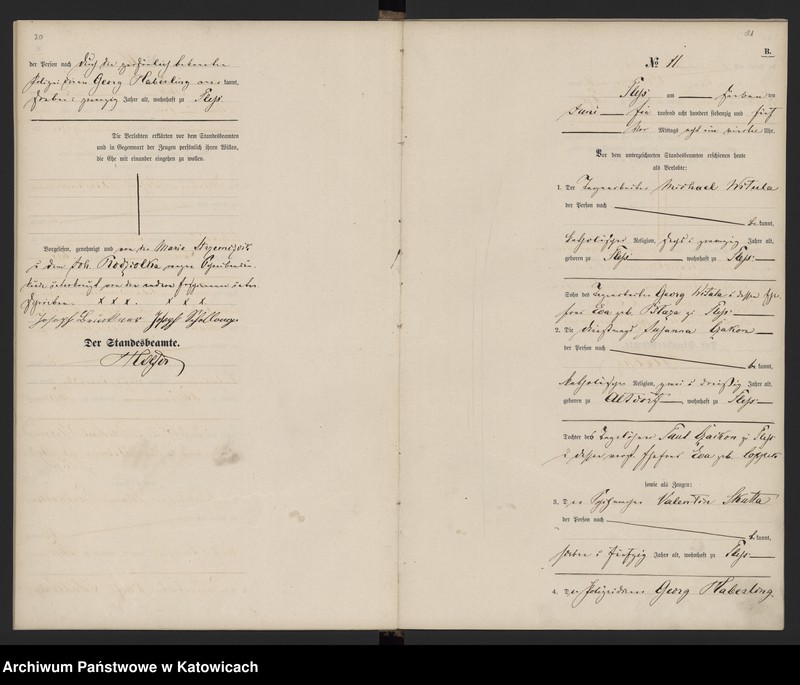 20
der Person nach durch den persönlich bekannten
Polizeidiener Georg Haberling aner kannt,
sieben u zwanzig Jahre alt, wohnhaft zu Pleß
Die Verlobten erklärten vor dem Standesbeamten
und in Gegenwart der Zeugen persönlich ihren Willen,
die Ehe mit einander eingehen zu wollen.
Vorgelesen, genehmigt und von der Marie
u dem Joh. wegen Schreibens un-
kunde unterkreuzt von den andern Personen unter-
schrieben x x x. x x x.
Joseph Joseph
Der Standesbeamte.
21
B.
№ 11
Pleß am sieben ten
Juni Ein tausend acht hundert siebenzig und fünf
Vor Mittags acht ein viertel Uhr.
Vor dem unterzeichneten Standesbeamten erschienen heute
als Verlobte:
1. Der Tagearbeiter Michael Witula
der Person nach
be kannt,
katholischer Religion, sechs u zwanzig Jahre alt,
geboren zu Pleß wohnhaft zu Pleß
Sohn des Tagearbeiter Georg Witula u dessen Ehe-
frau Eva geb. zu Pleß
2. Die Dienstmagd Susanna Gaikon
der Person nach
be kannt,
katholischer Religion, zwei u dreißig Jahre alt,
geboren zu Altdorf wohnhaft zu Pleß
Tochter des Tagelöhner Paul Gaikon zu Pleß
u dessen verst. Ehefrau Eva geb.
sowie als Zeugen:
3. Der Valentin Skutta
der Person nach
be kannt,
sieben u fünfzig Jahre alt, wohnhaft zu Pleß
4. Der Polizeidiener Georg Haberling.
Archiwum Państwowe w Katowicach